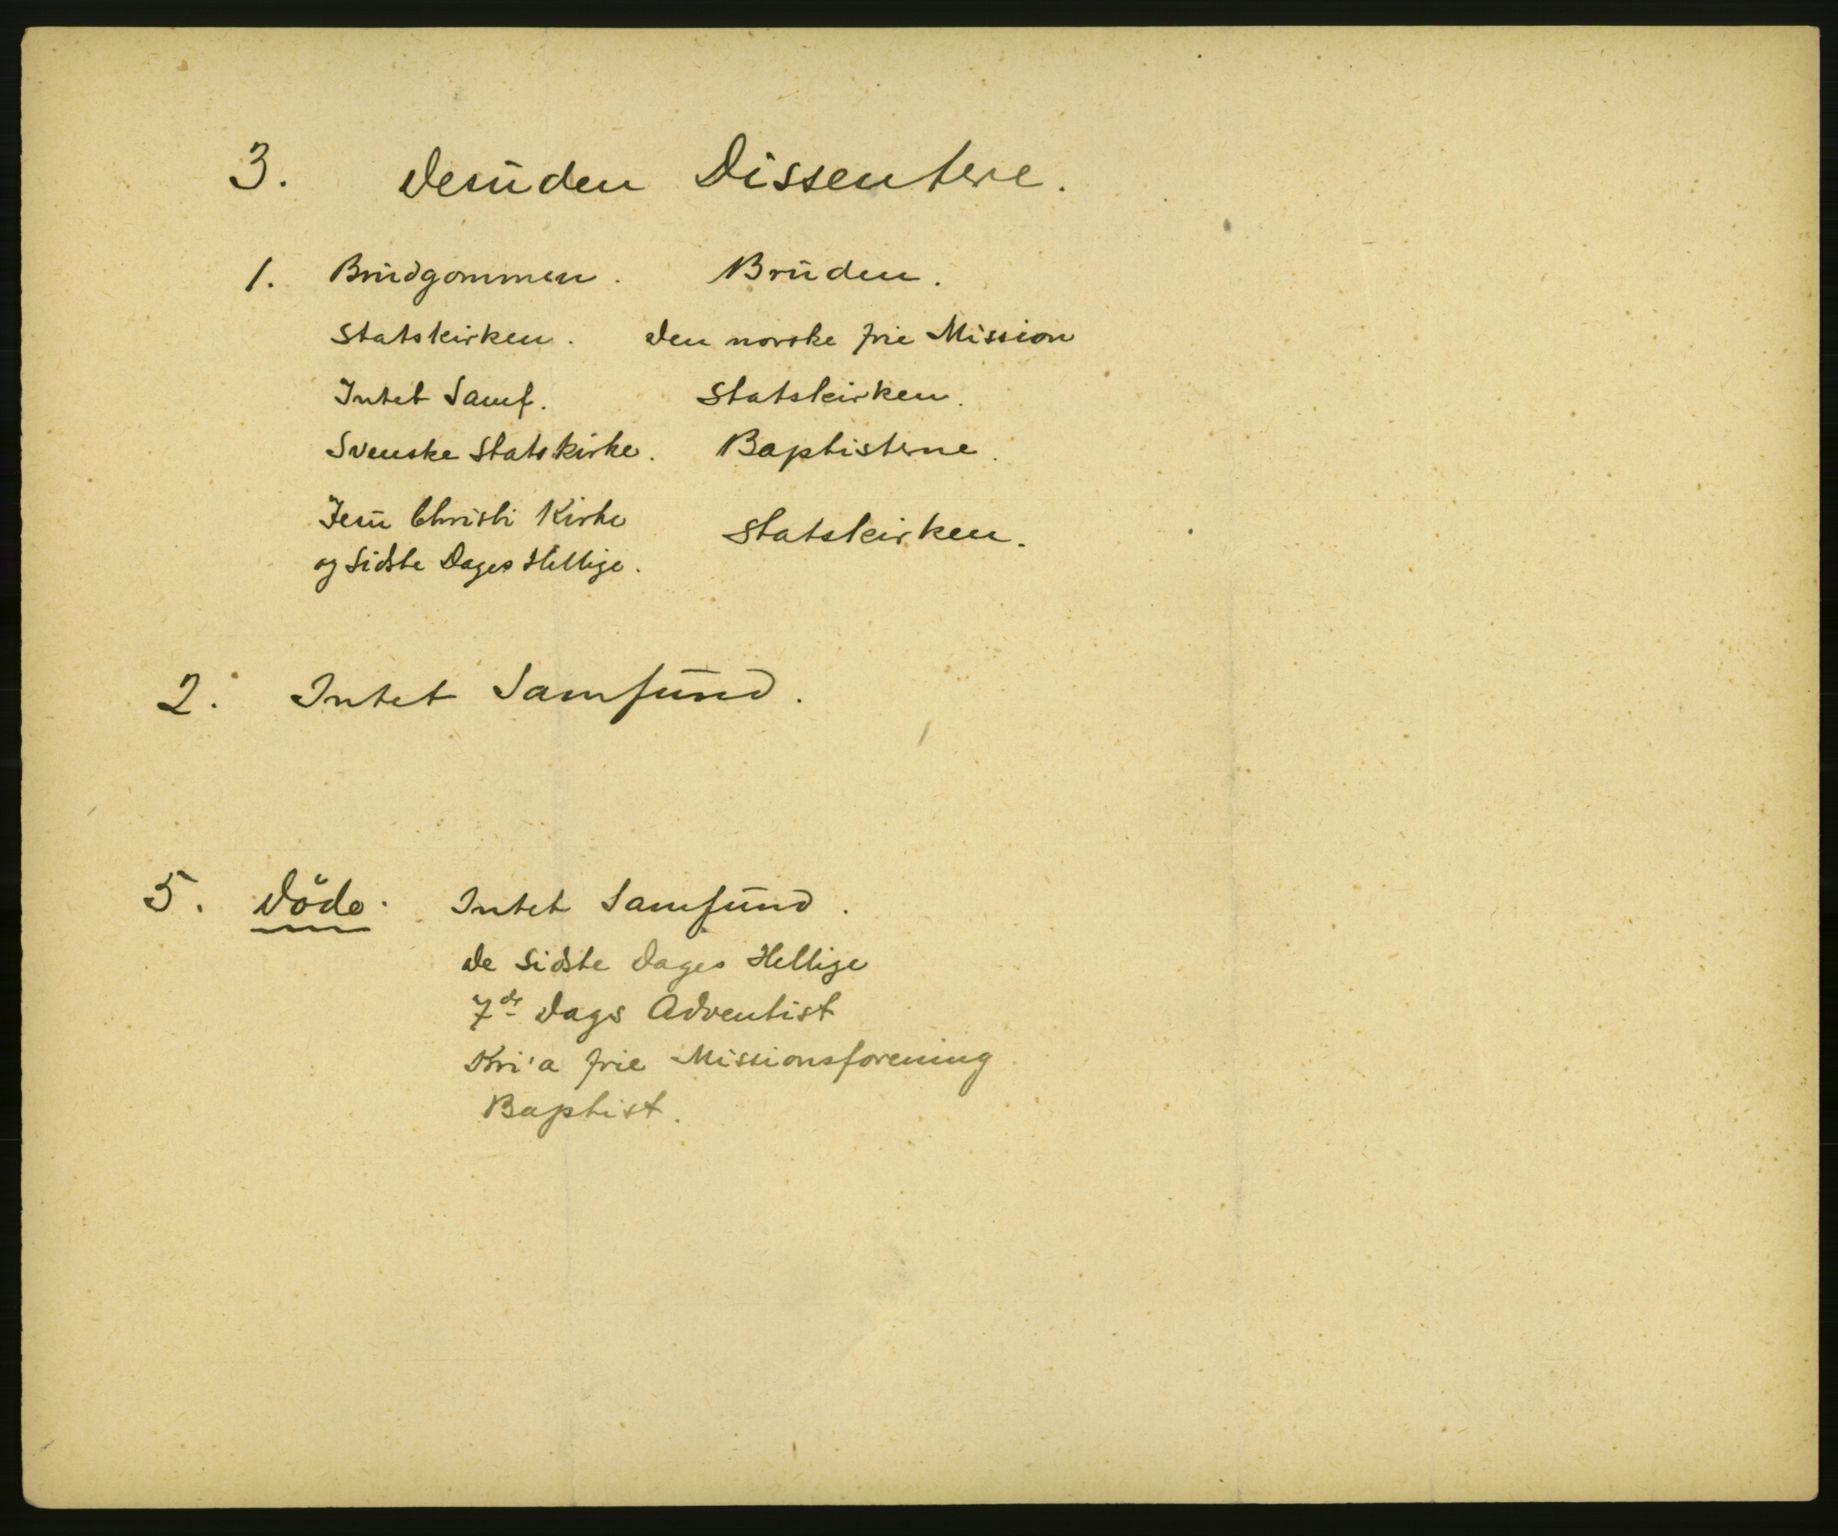 3. Desuden Dissentere.
1. Brudgommen. Bruden.
Statskirken. Den norske frie Mission
Intet Samf. Statskirken.
Svenske Statskirke. Baptisterne.
Jesu Christi Kirke
og Sidste Dages Hellige. Statskirken.
2. Intet Samfund.
5. Döde. Intet Samfund.
De Sidste Dages Hellige
7de Dags Adventist
Kri'a frie Missionsforening
Baptist.